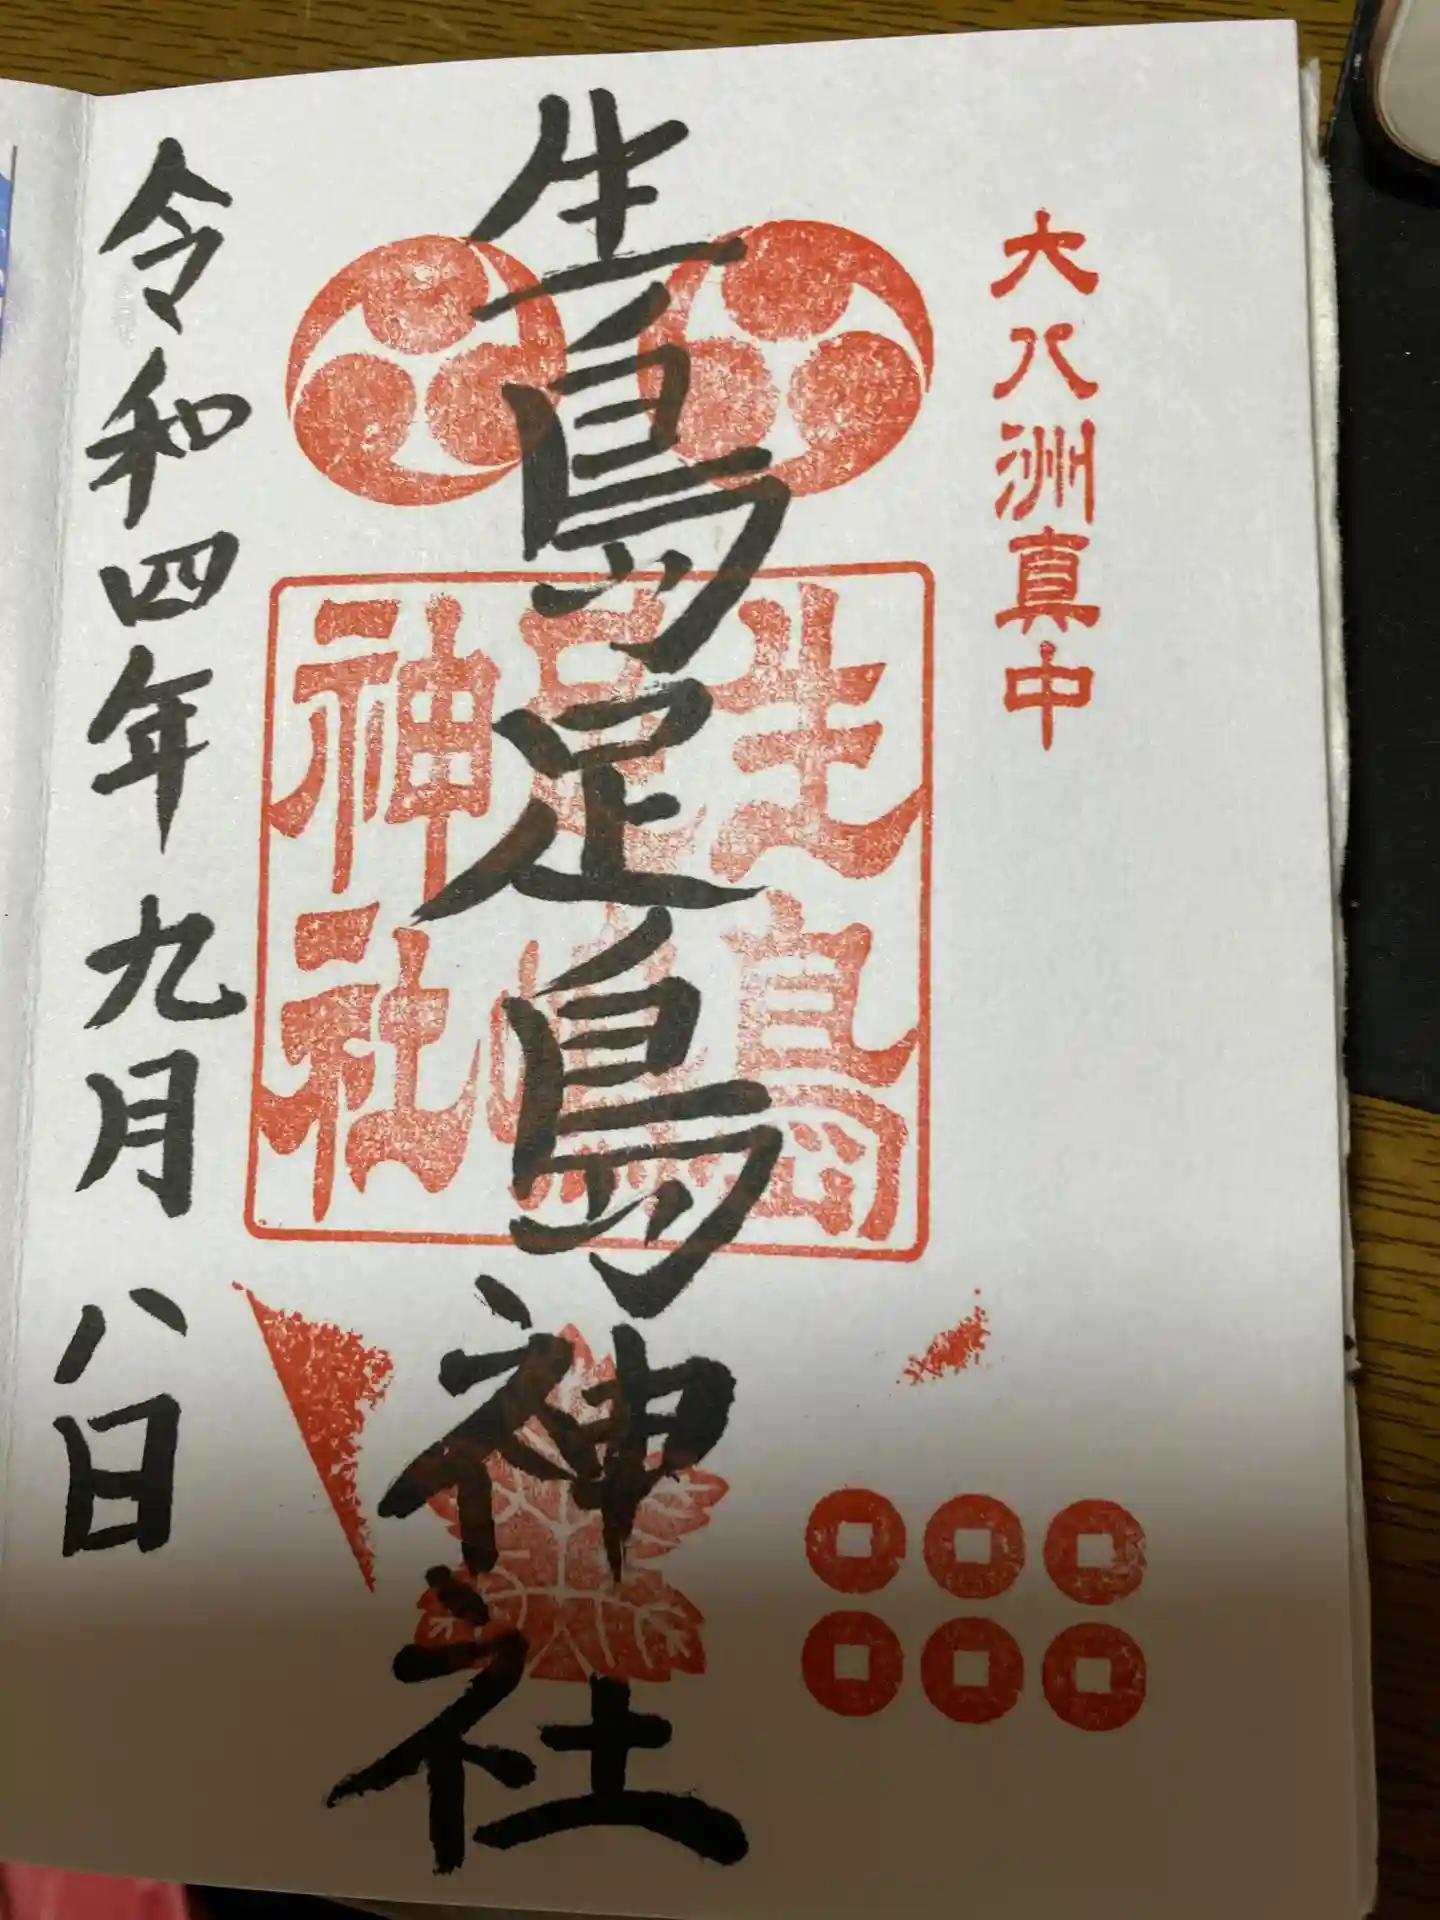 大八洲真中
生島足島神社
生島
足島
神社
令和四年九月八日